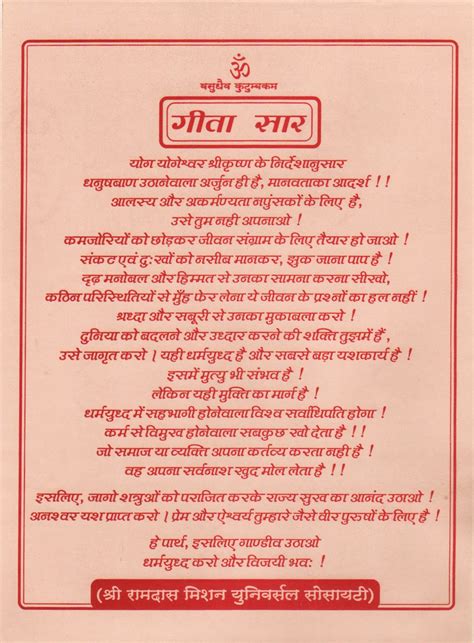 ॐ
वसुधैव कुटुम्बकम
गीता सार
योग योगेश्वर श्रीकृष्ण के निर्देशानुसार
धनुषबाण उठानेवाला अर्जुन ही है, मानवताका आदर्श ! !
आलस्य और अकर्मण्यता नपुंसकों के लिए है,
उसे तुम नही अपनाओ !
कमजोरियों को छोड़कर जीवन संग्राम के लिए तैयार हो जाओ !
संकट एवं दुःखों को नसीब मानकर, झुक जाना पाप है !
दृढ़ मनोबल और हिम्मत से उनका सामना करना सीखो,
कठिन परिस्थितियों से मुँह फेर लेना ये जीवन के प्रश्नों का हल नहीं !
श्रध्दा और सबूरी से उनका मुकाबला करो !
दुनिया को बदलने और उध्दार करने की शक्ति तुझमें हैं,
उसे जागृत करो । यही धर्मयुध्द है और सबसे बड़ा यशकार्य है !
इसमें मृत्यु भी संभव है !
लेकिन यही मुक्ति का मार्ग है !
धर्मयुध्द में सहभागी होनेवाला विश्व सर्वाधिपति होगा !
कर्म से विमुख होनेवाला सबकुछ खो देता है ! !
जो समाज या व्यक्ति अपना कर्तव्य करता नही है !
वह अपना सर्वनाश खुद मोल लेता है ! !
इसलिए, जागो शत्रुओं को पराजित करके राज्य सुख का आनंद उठाओ !
अनश्वर यश प्राप्त करो । प्रेम और ऐश्वर्य तुम्हारे जैसे वीर पुरुषों के लिए है !
हे पार्थ, इसलिए गाण्डीव उठाओ
धर्मयुध्द करो और विजयी भवः !
(श्री रामदास मिशन युनिवर्सल सोसायटी)